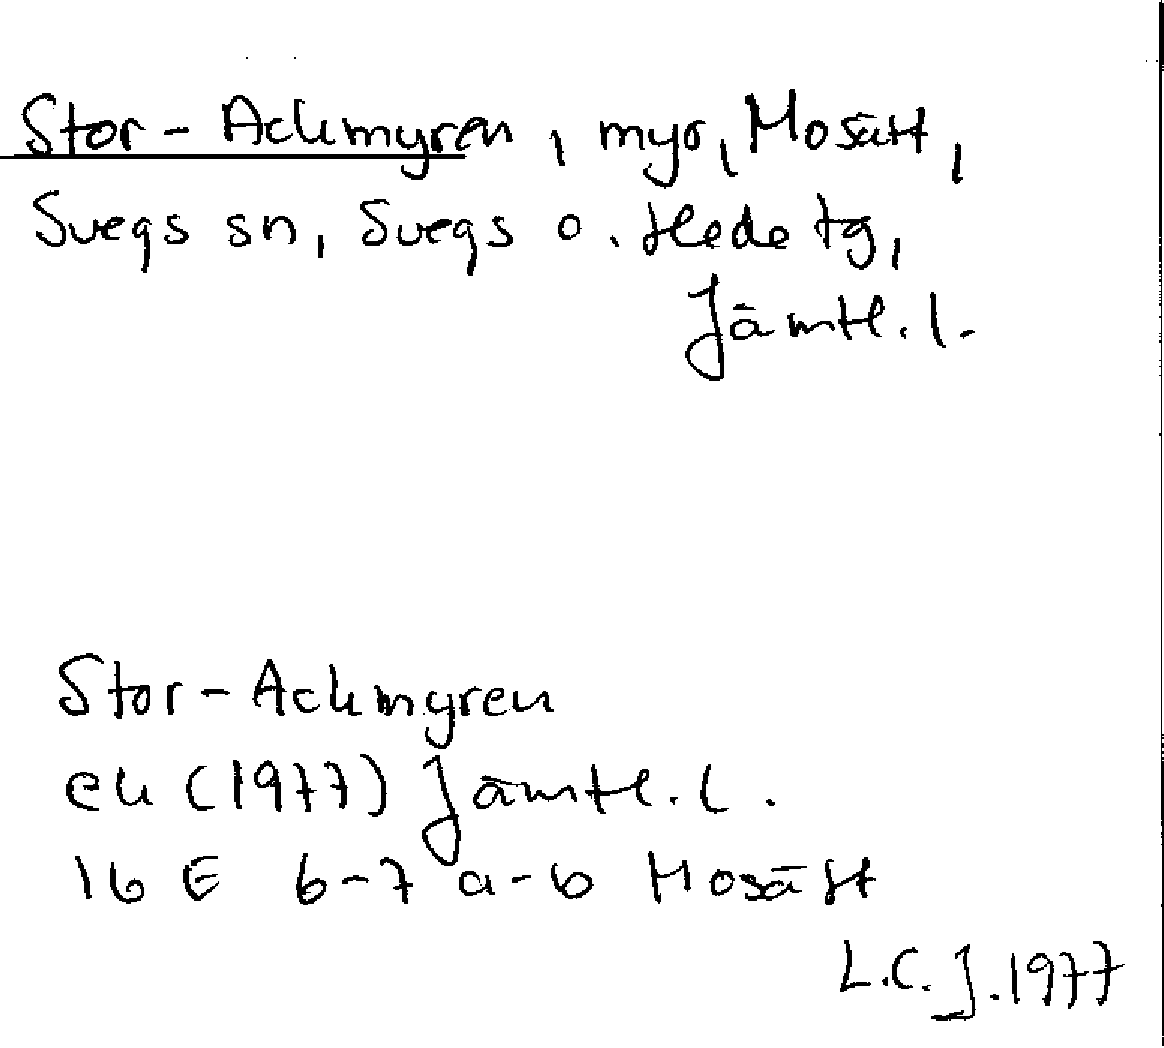 Stor-Ackmyren, myr, Mosätt,
Svegs sn, Svegs o. Hede tg,
Jämtl. l.
Stor-Ackmyren
ek (1977) Jämtl. l.
16 E 6-7 a-b Mosätt
L.C.J. 1977